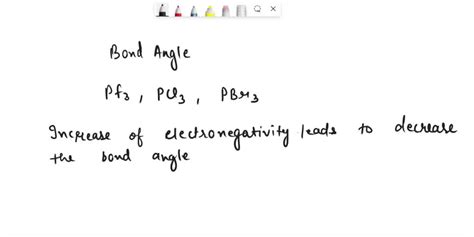 Bond Angle
Pf3, PCl3, PBr3
Increase of electronegativity leads to decrease
the bond angle